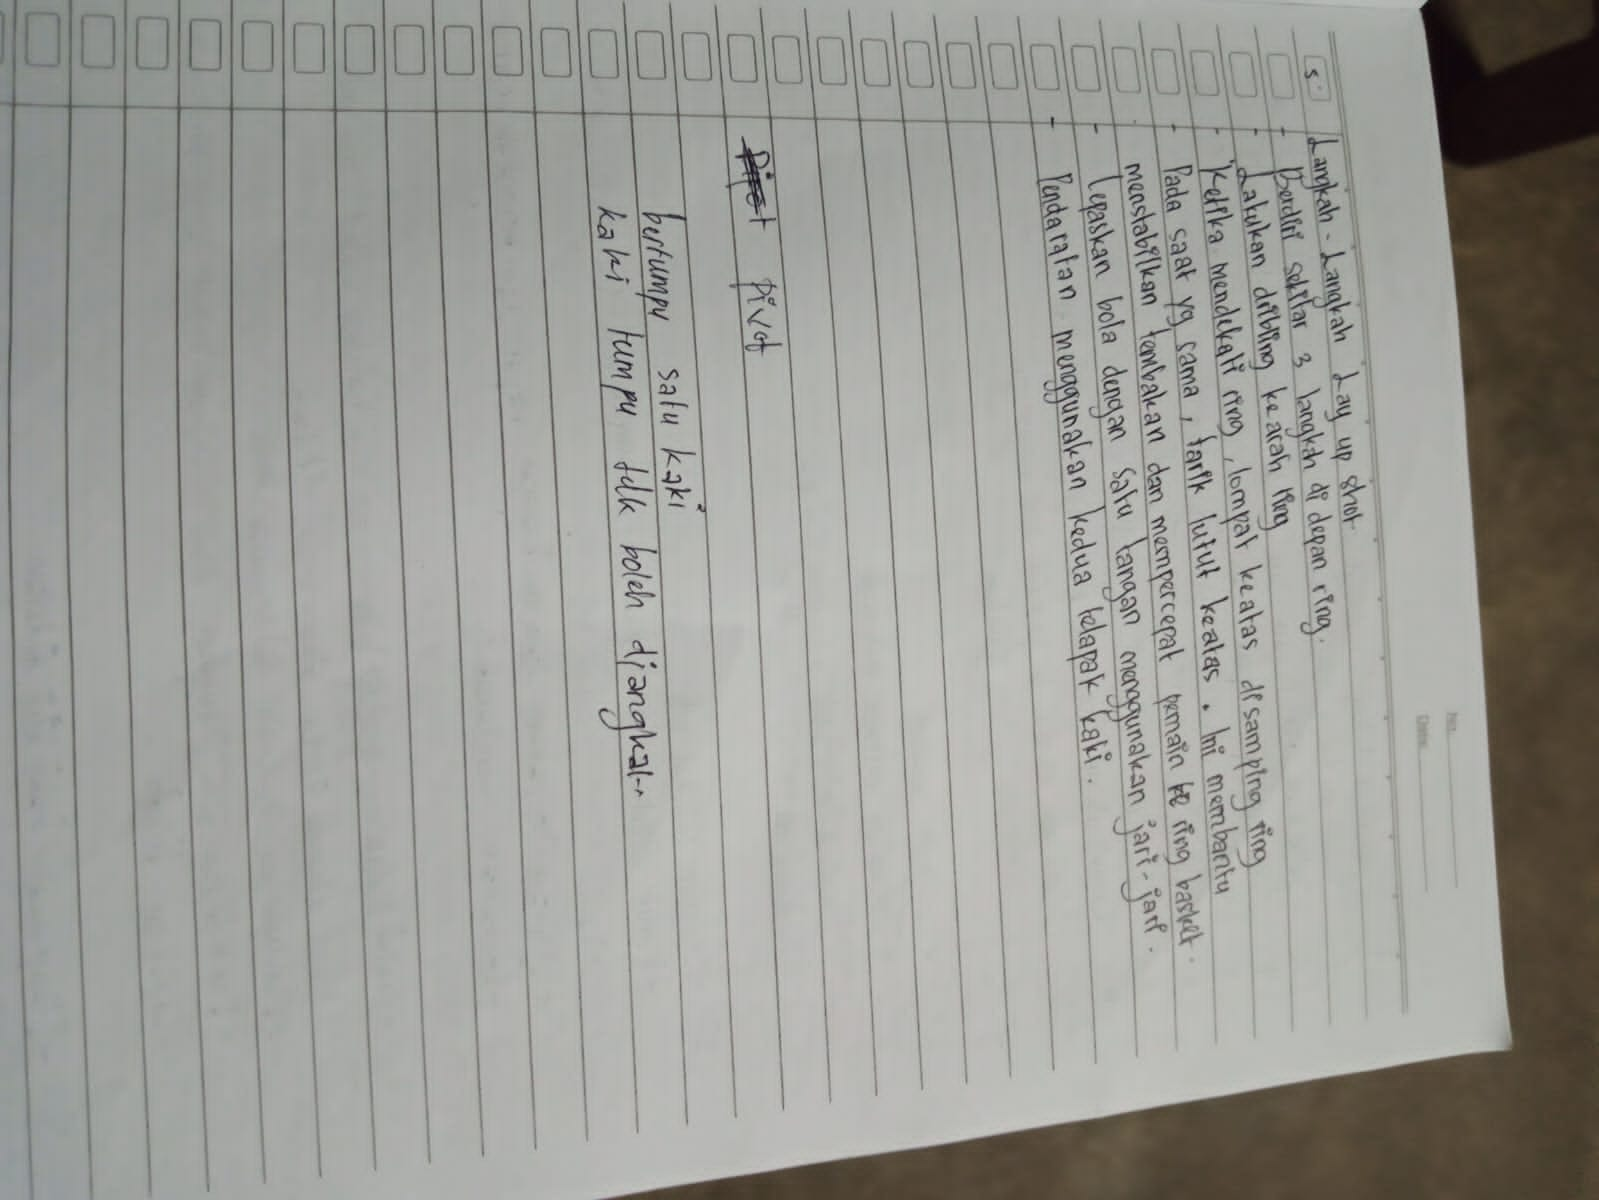 No.
Date
5. Langkah - Langkah Lay up shot
- Berdiri sekitar 3 langkah di depan ring.
- Lakukan dribling ke arah ring
- Ketika mendekati ring, lompat keatas disamping ring
- Pada saat yg sama, tarik lutut keatas. Ini membantu
menstabilkan tembakan dan mempercepat pemain ke ring basket.
- Lepaskan bola dengan satu tangan menggunakan jari-jari.
- Pendaratan menggunakan kedua telapak kaki.
pivot
bertumpu satu kaki
kaki tumpu tdk boleh diangkat..